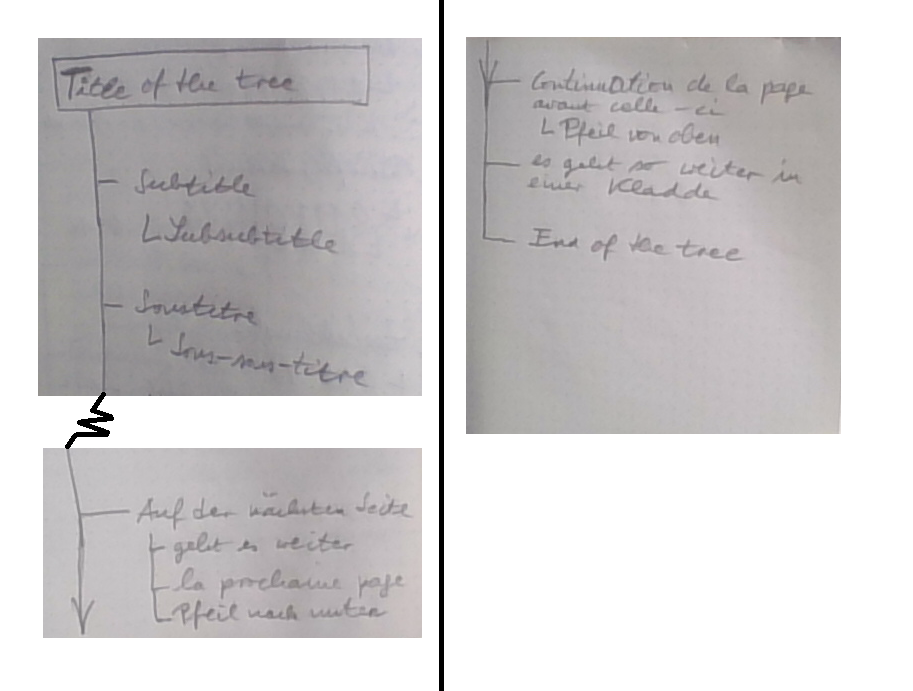 Title of the tree
Subtitle
Subsubtitle
Soustitre
Sous-sous-titre
Auf der nächsten Seite
geht es weiter
la prochaine page
Pfeil nach unten
Continuation de la page
avant celle-ci
Pfeil von oben
es geht so weiter in
einer Kladde
End of the tree